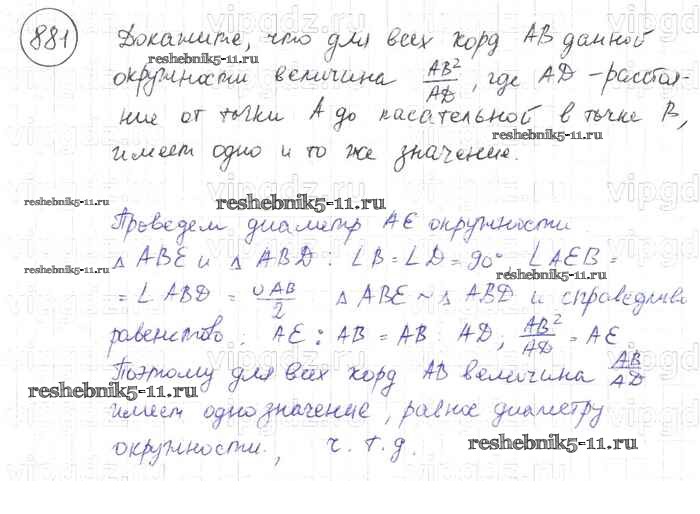 881 Докажите, что для всех хорд AB данной
окружности величина AB²/AD, где AD - расстоя-
ние от точки A до касательной в точке B,
имеет одно и то же значение.
reshebnik5-11.ru
reshebnik5-11.ru
reshebnik5-11.ru
reshebnik5-11.ru
Проведем диаметр AE окружности
△ ABE и △ ABD : ∠B = ∠D = 90° ∠AEB =
reshebnik5-11.ru
reshebnik5-11.ru
= ∠ ABD = ∪AB/2 △ ABE ~ △ ABD и справедливо
равенство: AE : AB = AB : AD, AB²/AD = AE
Поэтому для всех хорд AB величина AB/AD
reshebnik5-11.ru
имеет одно значение, равное диаметру
окружности., ч.т.д.
reshebnik5-11.ru